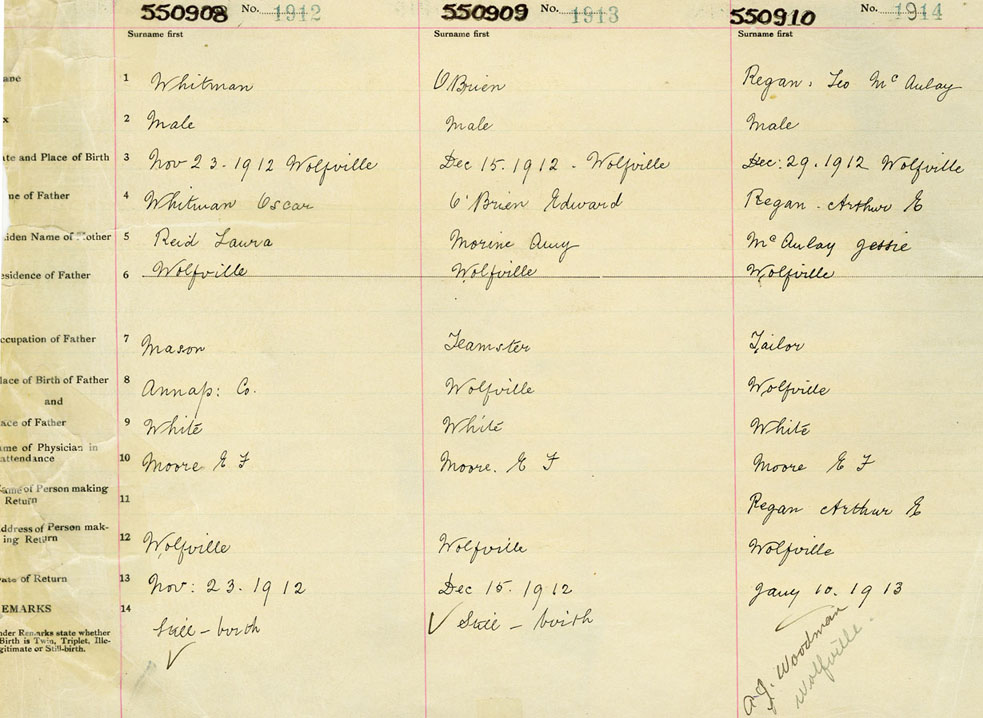 550908 No. 1912 550909 No. 1913 550910 No. 1914
Surname first Surname first Surname first
ame 1 Whitman O'Brien Regan, Leo McAulay
x 2 Male Male Male
ate and Place of Birth 3 Nov 23. 1912 Wolfville Dec 15. 1912 - Wolfville Dec: 29. 1912 Wolfville
me of Father 4 Whitman Oscar O'Brien Edward Regan - Arthur E
aiden Name of Mother 5 Reid Laura Morine Amy McAulay Jessie
esidence of Father 6 Wolfville Wolfville Wolfville
ccupation of Father 7 Mason Teamster Tailor
lace of Birth of Father 8 Annap: Co. Wolfville Wolfville
and
ace of Father 9 White White White
ame of Physician in
attendance 10 Moore E F Moore. E F Moore E F
Name of Person making
Return 11 Regan Arthur E
ddress of Person mak-
ing Return 12 Wolfville Wolfville Wolfville
ate of Return 13 Nov: 23. 1912 Dec 15. 1912 Jany 10. 1913
EMARKS 14 Still - birth ✓ Still - birth
nder Remarks state whether
Birth is Twin, Triplet, Ille-
gitimate or Still-birth.
✓
A. J. Woodman
Wolfville.